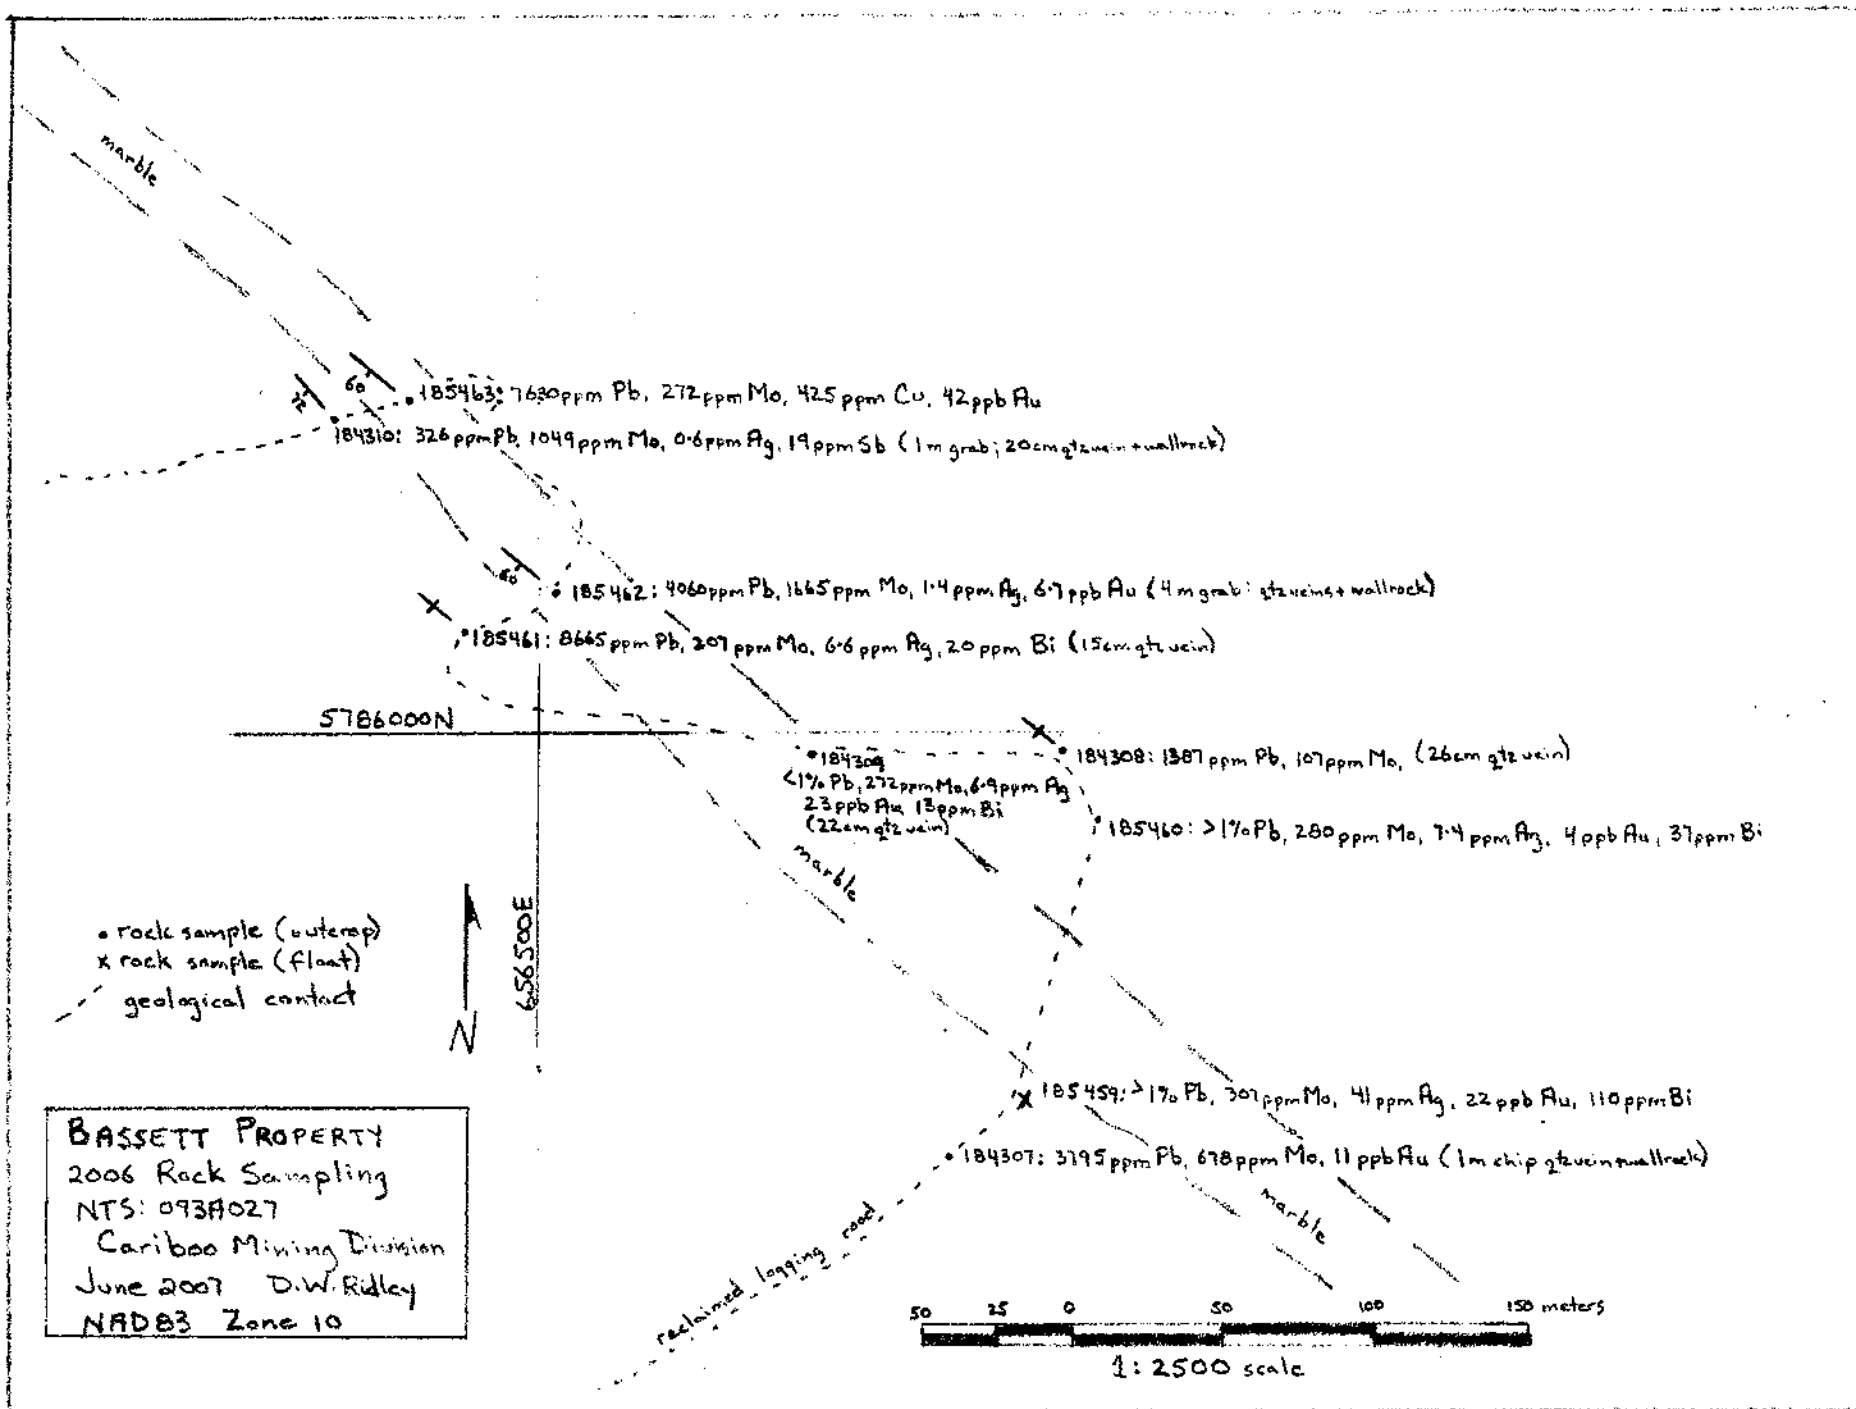 marble
60
72
185463: 7630ppm Pb, 272ppm Mo, 425ppm Cu, 42ppb Au
184310: 326ppm Pb, 1049ppm Mo, 0.6ppm Ag, 19ppm Sb (1m grab; 20cm qtz vein + wallrock)
60
185462: 4060ppm Pb, 1665ppm Mo, 1.4ppm Ag, 6.7ppb Au (4m grab: qtz veins + wallrock)
185461: 8665ppm Pb, 207ppm Mo, 6.6ppm Ag, 20ppm Bi (15cm qtz vein)
5786000N
184309
<1% Pb, 272ppm Mo, 6.9ppm Ag
23ppb Au 13ppm Bi
(22cm qtz vein)
184308: 1387ppm Pb, 107ppm Mo, (26cm qtz vein)
185460: >1% Pb, 280ppm Mo, 7.4ppm Ag, 4ppb Au, 37ppm Bi
marble
656500E
• rock sample (outcrop)
x rock sample (float)
geological contact
N
185459: >1% Pb, 307ppm Mo, 41ppm Ag, 22ppb Au, 110ppm Bi
184307: 3795ppm Pb, 678ppm Mo, 11ppb Au (1m chip qtz vein + wallrock)
marble
reclaimed logging road
BASSETT PROPERTY
2006 Rock Sampling
NTS: 093A027
Cariboo Mining Division
June 2007 D.W. Ridley
NAD83 Zone 10
50 25 0 50 100 150 meters
1:2500 scale